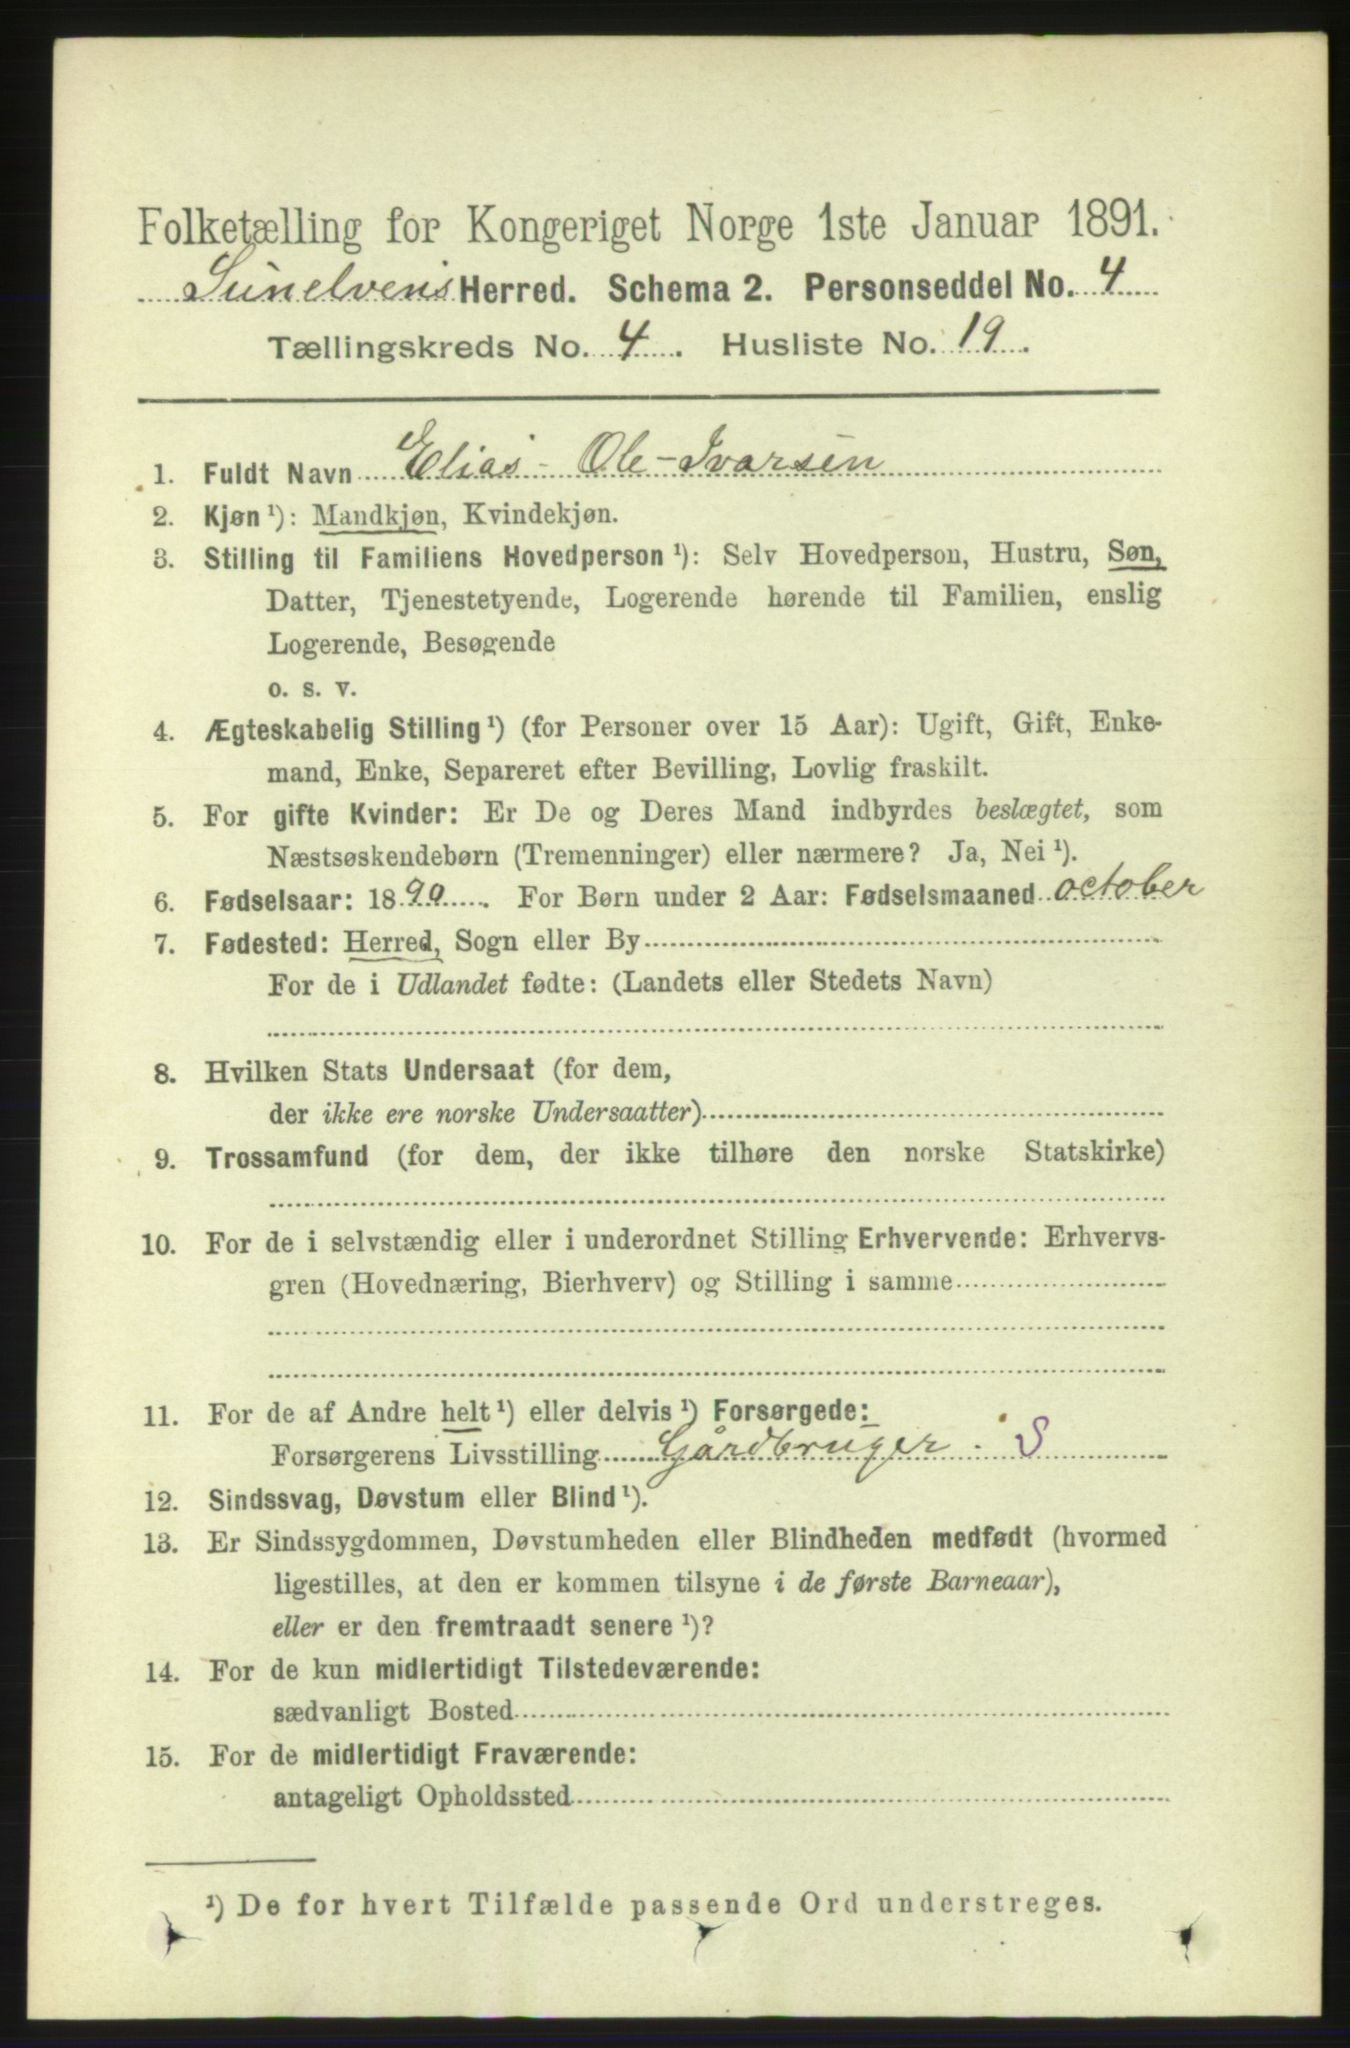 Folketælling for Kongeriget Norge 1ste Januar 1891.
Sunelvens Herred. Schema 2. Personseddel No. 4
Tællingskreds No. 4. Husliste No. 19.
1. Fuldt Navn Elias Ole-Ivarsen
2. Kjøn ¹): Mandkjøn, Kvindekjøn.
3. Stilling til Familiens Hovedperson ¹): Selv Hovedperson, Hustru, Søn,
Datter, Tjenestetyende, Logerende hørende til Familien, enslig
Logerende, Besøgende
o. s. v.
4. Ægteskabelig Stilling ¹) (for Personer over 15 Aar): Ugift, Gift, Enke-
mand, Enke, Separeret efter Bevilling, Lovlig fraskilt.
5. For gifte Kvinder: Er De og Deres Mand indbyrdes beslægtet, som
Næstsøskendebørn (Tremenninger) eller nærmere? Ja, Nei ¹).
6. Fødselsaar: 1890. For Børn under 2 Aar: Fødselsmaaned october
7. Fødested: Herred, Sogn eller By
For de i Udlandet fødte: (Landets eller Stedets Navn)
8. Hvilken Stats Undersaat (for dem,
der ikke ere norske Undersaatter)
9. Trossamfund (for dem, der ikke tilhøre den norske Statskirke)
10. For de i selvstændig eller i underordnet Stilling Erhvervende: Erhvervs-
gren (Hovednæring, Bierhverv) og Stilling i samme
11. For de af Andre helt ¹) eller delvis ¹) Forsørgede:
Forsørgerens Livsstilling Gårdbruger. S
12. Sindssvag, Døvstum eller Blind ¹).
13. Er Sindssygdommen, Døvstumheden eller Blindheden medfødt (hvormed
ligestilles, at den er kommen tilsyne i de første Barneaar),
eller er den fremtraadt senere ¹)?
14. For de kun midlertidigt Tilstedeværende:
sædvanligt Bosted
15. For de midlertidigt Fraværende:
antageligt Opholdssted
¹) De for hvert Tilfælde passende Ord understreges.